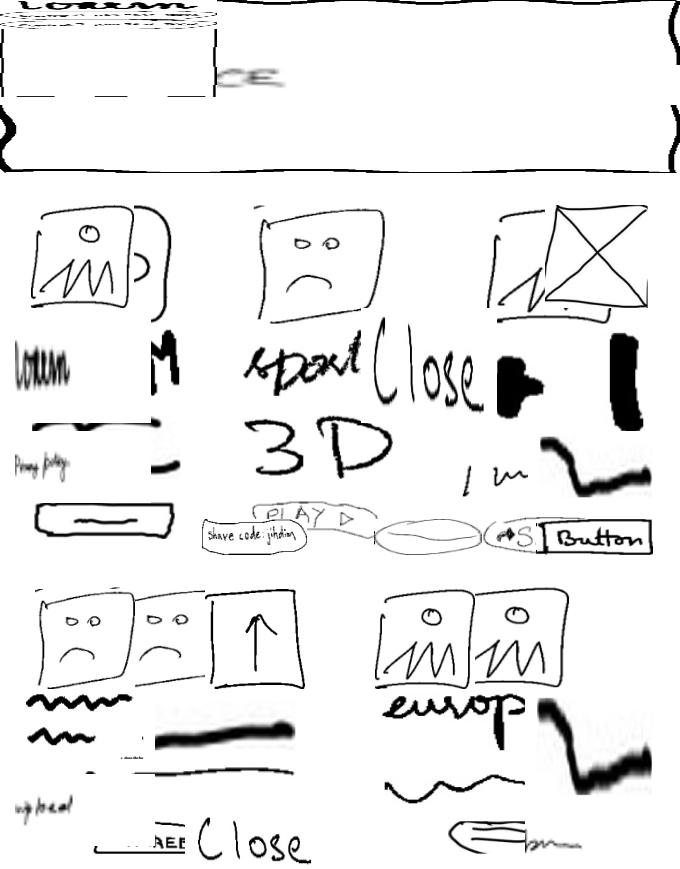 lorem
CE
lorem M sport Close
3D
Privacy policy 1 m
PLAY
Share code: jihdim S Button
europ
upload
REE Close